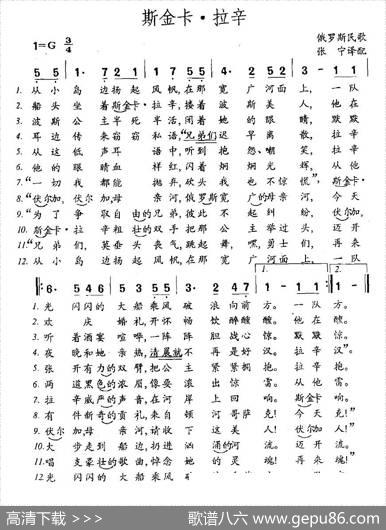 斯金卡·拉辛
1=G 3/4
俄罗斯民歌
张 宁译配
5 5 | 1· 7 2 1 | 5 5 5 | 1· 7 5 5 | 2 2 3 5 2 | 3 - 1 | 1 1
1. 从 小 岛 边扬起 风帆,在那 宽 广河面 上, 一队
2. 船 头 坐 着斯金卡·拉辛,搂着 波 斯美 人, 他在
3. 波 斯 公 主半死 半活,闭着 她 的眼 睛, 默默
4. 耳 边 传 来窃窃 私语,“兄弟们 迟 早离 散, 拉辛
5. 从 这 低 声耳 语中,听到 抱 怨、嘲 笑, 拉辛
6. 他 的 眼 睛血 样红,闪着 炯 炯光 辉, 从他
7.“一 切 我 都能 抛弃,砍头 我 也不惊 慌”, 斯金卡·
8.“伏尔 加,伏尔 加母 亲河,俄罗斯 宽 广的母 亲河, 今天
9.“为 了 争 取自 由的兄弟,彼此 不 起纠 纷, 伏尔加,
10. 斯金卡·拉 辛粗 壮的双手 把那 公 主举过 头, 迈开
11.“兄 弟 们,莫垂头 丧气,跳起 舞, 嘿,勇士 们, 再来
12. 从 小 岛 边扬起 风帆,在那 宽 广河面 上, 一队
1. 光 闪闪的 大 船乘风 破 浪向前 方。 一队 方。
2. 欢 庆 婚 礼开怀 畅 饮醉醺 醺。 他在 醺。
3. 听 着酒宴 喧 哗,一阵 阵 胆战心 惊。 默默 惊。
4. 夜 晚和她 亲 热,清晨就 不 再是好 汉。 拉辛 汉”。
5. 张 开有力的 双 臂,把公 主 紧紧拥 抱。 拉辛 抱。
6. 两 道黑色的 浓 眉,像要 滚 出惊 雷。 从他 雷。
7. 拉 辛威严的 声 音,在河 岸 上回 响。 斯金卡 响。
8. 有 件新奇的 贡 礼,来自 顿 河哥萨 克! 今天 克!”
9. 伏尔 加母亲 河,请收 下 这美 人! 伏尔加 人!”
10. 大 步走到 船 边,扔进 汹 涌的河 流。 迈开 流。
11. 唱 支豪壮的 歌曲,悼念 她 的灵 魂! 再来 魂。”
12. 光 闪闪的 大 船乘风 破 浪向前 方。
高清下载 >>>
歌谱八六 www.gepu86.com